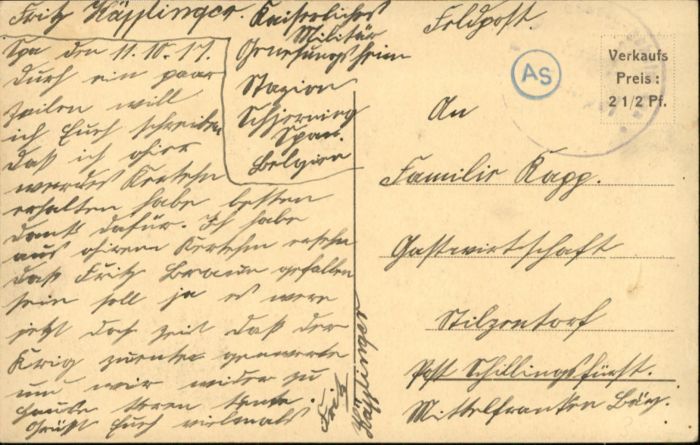 Fritz Hässlinger.
Kaiserliches
Militär
Genesungsheim
Stagion
Spaa.
Belgien
Spa den 11.10.17.
durch ein paar
Zeilen will
ich Euch schreiben
daß ich
wertes Kertchen
erhalten habe besten
Dank dafür. Ich habe
aus Kertchen ersehn
daß Fritz Braun gefallen
sein soll ja es were
jetzt doch zeit daß der
Krig zuente
und wir wider zu
Hause
Grüßt Euch vielmals
Fritz
Hässlinger
Feldpost.
As
Verkaufs
Preis:
2 1/2 Pf.
An
Familie Rapp.
Gastwirtschaft
Stilzentorf
Post Schillingsfürst.
Mittelfranken Bay.